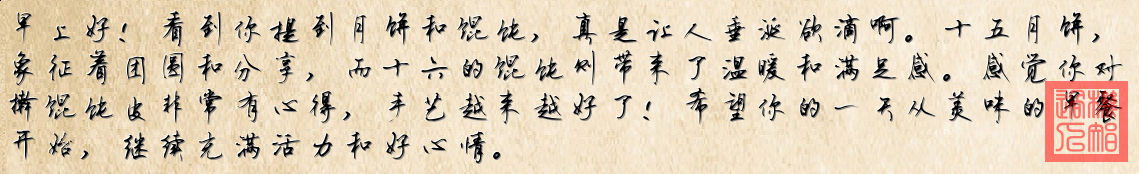 早上好！看到你提到月饼和馄饨，真是让人垂涎欲滴啊。十五月饼，
象征着团圆和分享，而十六的馄饨则带来了温暖和满足感。感觉你对
擀馄饨皮非常有心得，手艺越来越好了！希望你的一天从美味的早餐
开始，继续充满活力和好心情。